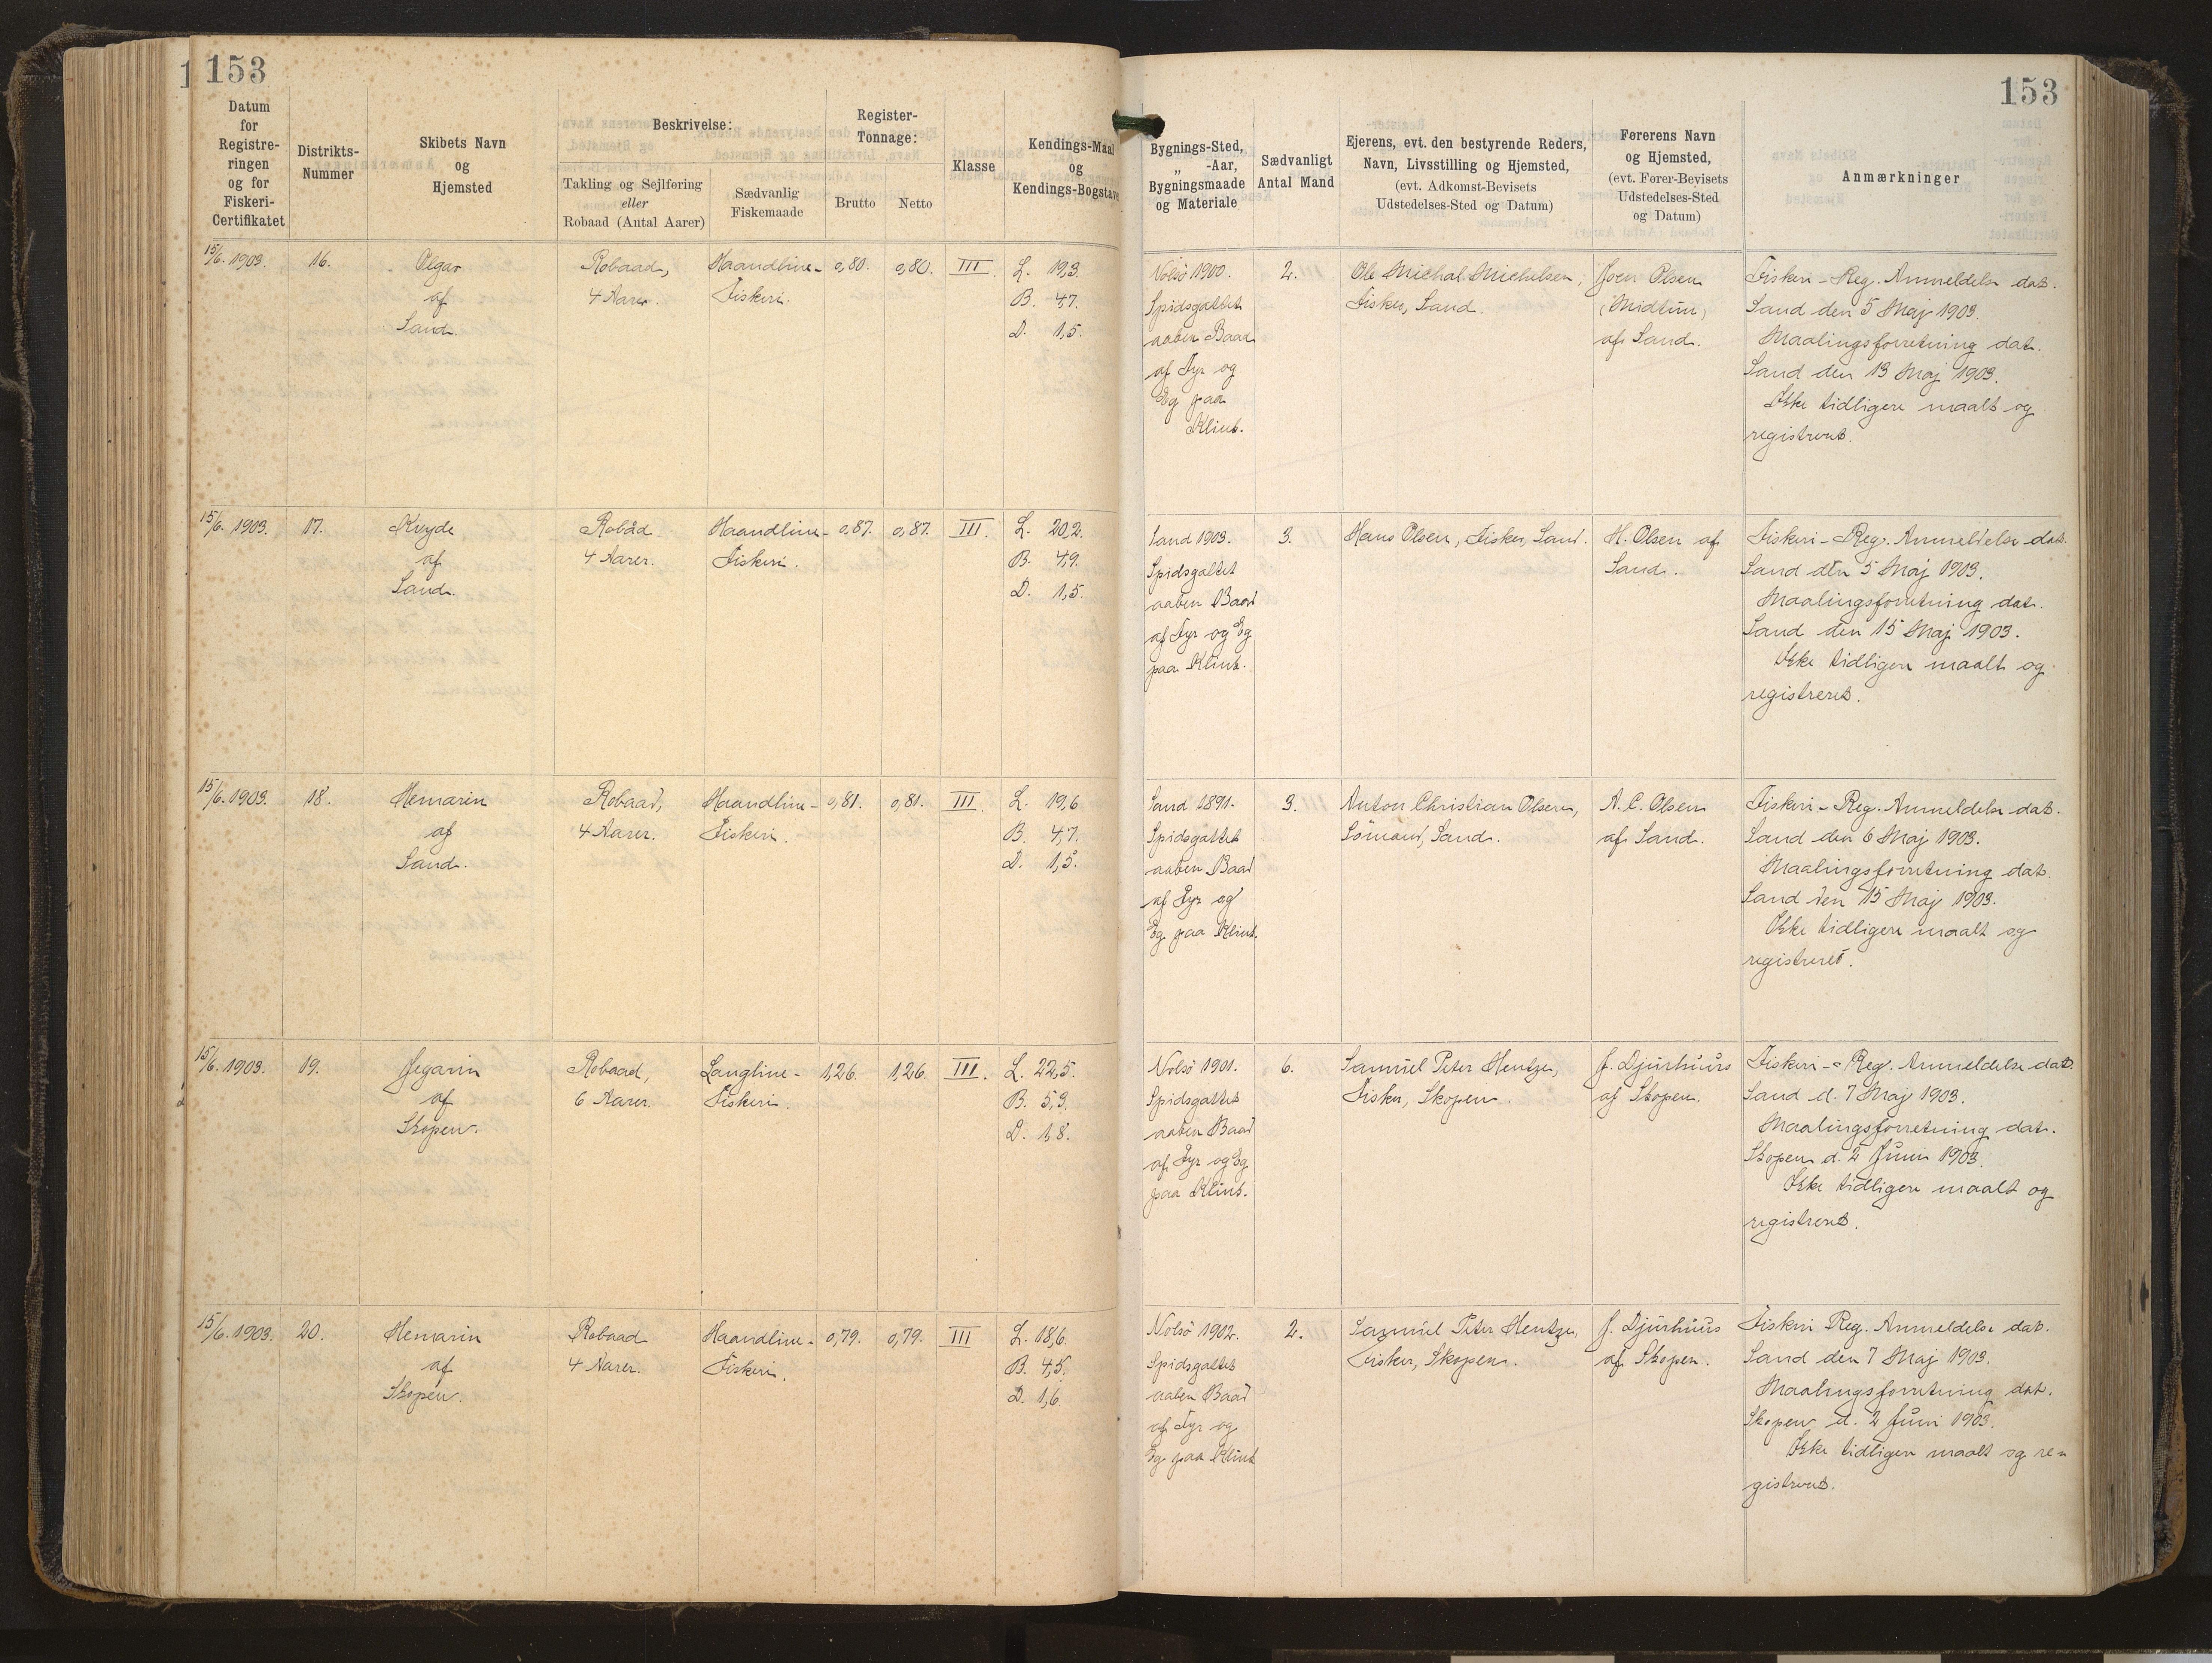 153
153
Datum
for
Registre-
ringen
og for
Fiskeri-
Certifikatet
Distrikts-
Nummer
Skibets Navn
og
Hjemsted
Beskrivelse:
Takling og Sejlføring
eller
Robaad (Antal Aarer)
Sædvanlig
Fiskemaade
Register-
Tonnage:
Brutto
Netto
Klasse
Kendings-Maal
og
Kendings-Bogstave
Bygnings-Sted,
„ -Aar,
Bygningsmaade
og Materiale
Sædvanligt
Antal Mand
Ejerens, evt. den bestyrende Reders,
Navn, Livsstilling og Hjemsted,
(evt. Adkomst-Bevisets
Udstedelses-Sted og Datum)
Førerens Navn
og Hjemsted,
(evt. Fører-Bevisets
Udstedelses-Sted
og Datum)
Anmærkninger
15/6. 1903.
16.
Olgar
af
Sand.
Robaad,
4 Aarer.
Haandline-
Fiskeri.
0,80.
0,80.
III.
L. 19,3.
B. 4,7.
D. 1,5.
Nolsö 1900.
Spidsgattet
aaben Baad
af Fyr og
Eg paa
Klint.
2.
Ole Michal Michelsen,
Fisker, Sand.
Joen Olsen
(Midtún)
af Sand.
Fiskeri-Reg. Anmeldelse dat.
Sand den 5 Maj 1903.
Maalingsforretning dat.
Sand den 13 Maj 1903.
Ikke tidligere maalt og
registreret.
15/6. 1903.
17.
Kryde
af
Sand.
Robåd
4 Aarer.
Haandline-
Fiskeri.
0,87.
0,87.
III.
L. 20,2.
B. 4,9.
D. 1,5.
Sand 1903.
Spidsgattet
aaben Baad
af Fyr og Eg
paa Klint.
3.
Hans Olsen, Fisker, Sand.
H. Olsen af
Sand.
Fiskeri-Reg. Anmeldelse dat.
Sand den 5 Maj 1903.
Maalingsforretning dat.
Sand den 15 Maj 1903.
Ikke tidligere maalt og
registreret.
15/6. 1903.
18.
Hemarin
af
Sand.
Robaad,
4 Aarer.
Haandline-
Fiskeri.
0,81.
0,81.
III.
L. 19,6
B. 4,7.
D. 1,5.
Sand 1891.
Spidsgattet
aaben Baad
af Fyr og
Eg paa Klint.
3.
Anton Christian Olsen,
Sömand, Sand.
A. C. Olsen
af Sand.
Fiskeri-Reg. Anmeldelse dat.
Sand den 6 Maj 1903.
Maalingsforretning dat.
Sand den 15 Maj 1903.
Ikke tidligere maalt og
registreret.
15/6. 1903.
19.
Jegarin
af
Skopen.
Robaad,
6 Aarer.
Langline-
Fiskeri.
1,26.
1,26.
III.
L. 22,5.
B. 5,3.
D. 1,8.
Nolsö 1901.
Spidsgattet
aaben Baad
af Fyr og Eg
paa Klint.
6.
Samúel Peter Hentze,
Fisker, Skopen.
J. Djurhuus
af Skopen.
Fiskeri-Reg. Anmeldelse dat.
Sand d. 7 Maj 1903.
Maalingsforretning dat.
Skopen d. 2 Juni 1903.
Ikke tidligere maalt og
registreret.
15/6. 1903.
20.
Hemarin
af
Skopen.
Robaad
4 Aarer.
Haandline-
Fiskeri.
0,79.
0,79.
III
L. 18,6.
B. 4,5.
D. 1,6.
Nolsö 1902.
Spidsgattet
aaben Baad
af Fyr og
Eg paa Klint
2.
Samúel Peter Hentze,
Fisker, Skopen.
J. Djurhuus
af Skopen.
Fiskeri Reg. Anmeldelse dat.
Sand den 7 Maj 1903.
Maalingsforretning dat.
Skopen d. 2 Juni 1903.
Ikke tidligere maalt og re-
gistreret.